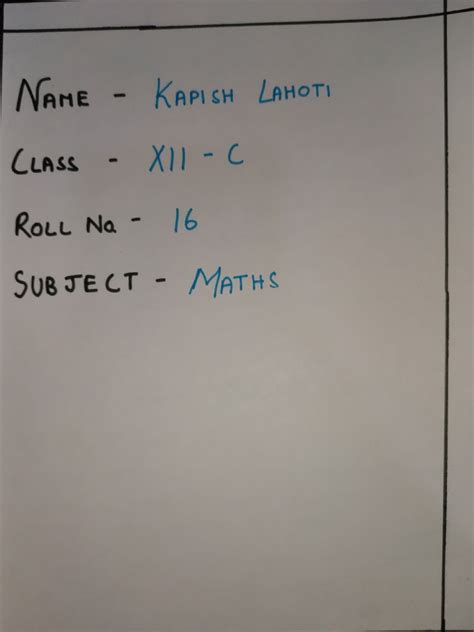 NAME - KAPISH LAHOTI
CLASS - XII - C
ROLL No - 16
SUBJECT - MATHS